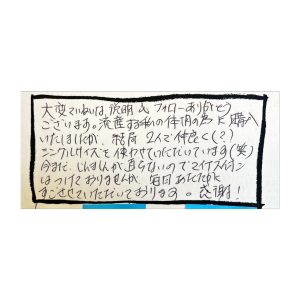 大変ていねいな説明&フォローありがとう
ございます。流産する私の体用の為に購入
いたしましたが、結局2人で仲良く(?)
シングルサイズを使わせていただいています(笑)
今まだ、じんましんが直らないのでマイナスイオン
はつけておりませんが毎日あたたかく
すごさせていただいております。感謝!